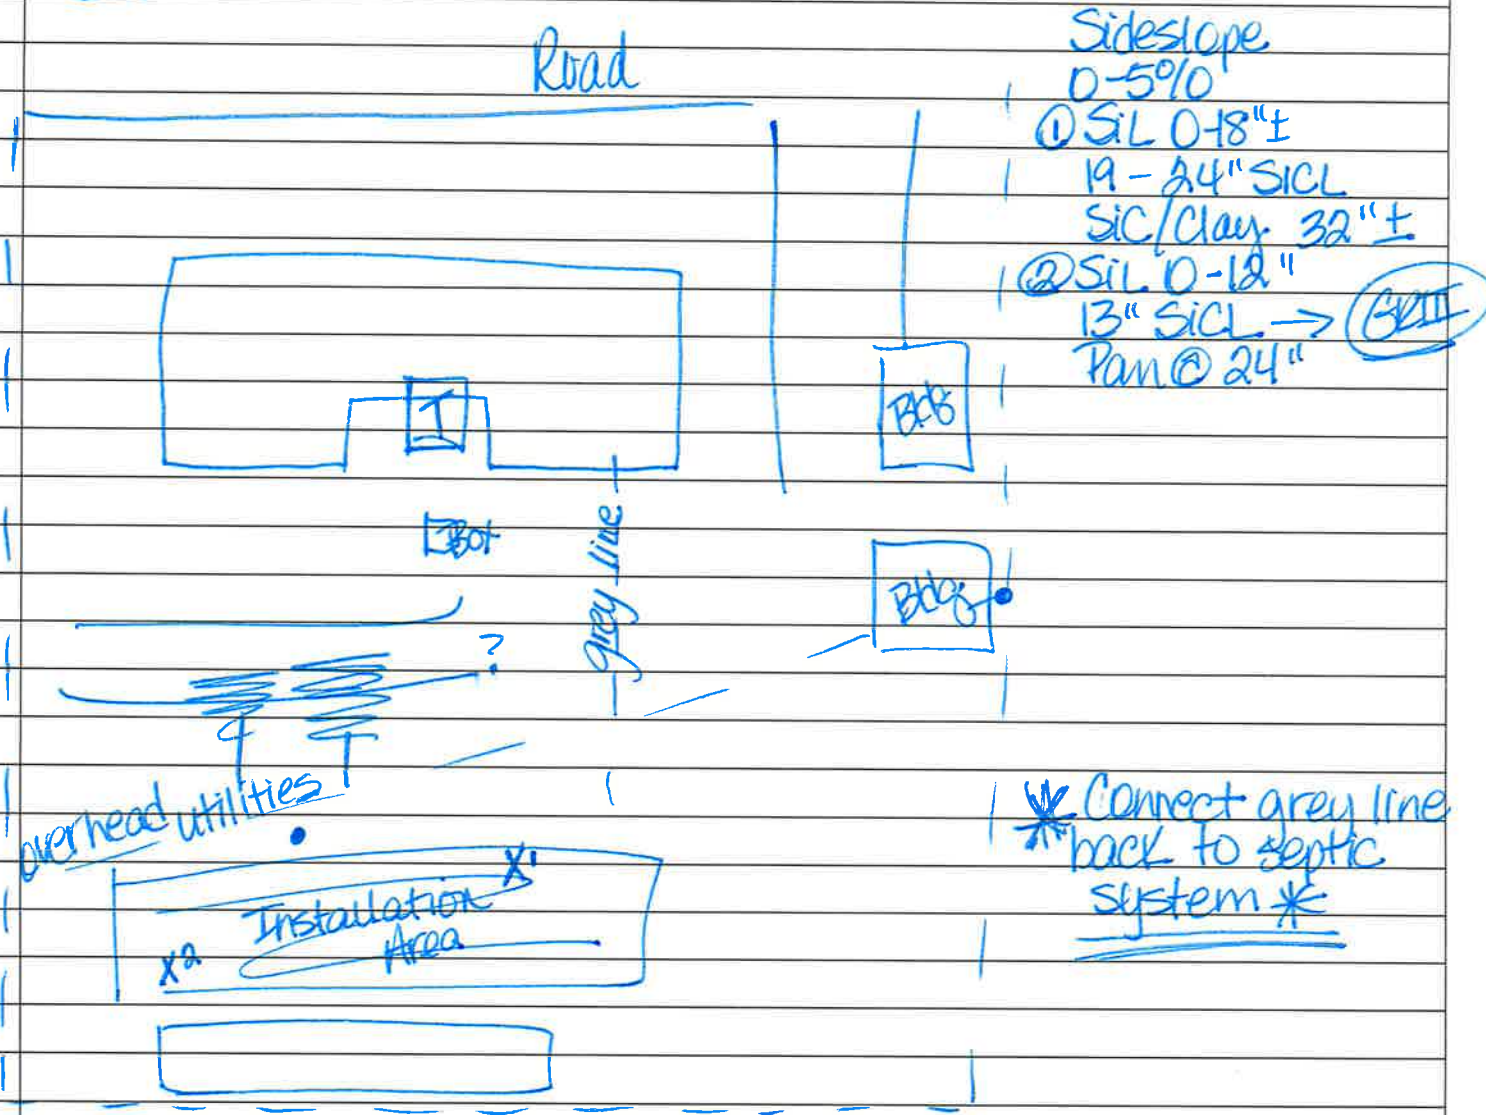 Road
Sideslope
0-5%
① SiL 0-18"±
19-24" SiCL
SiC/Clay 32"±
② SiL 0-12"
13" SiCL → GRIII
Pan @ 24"
T
Bldg
grey line
Bldg
?
overhead utilities
X1
Installation
Area
X2
* Connect grey line
back to septic
system *